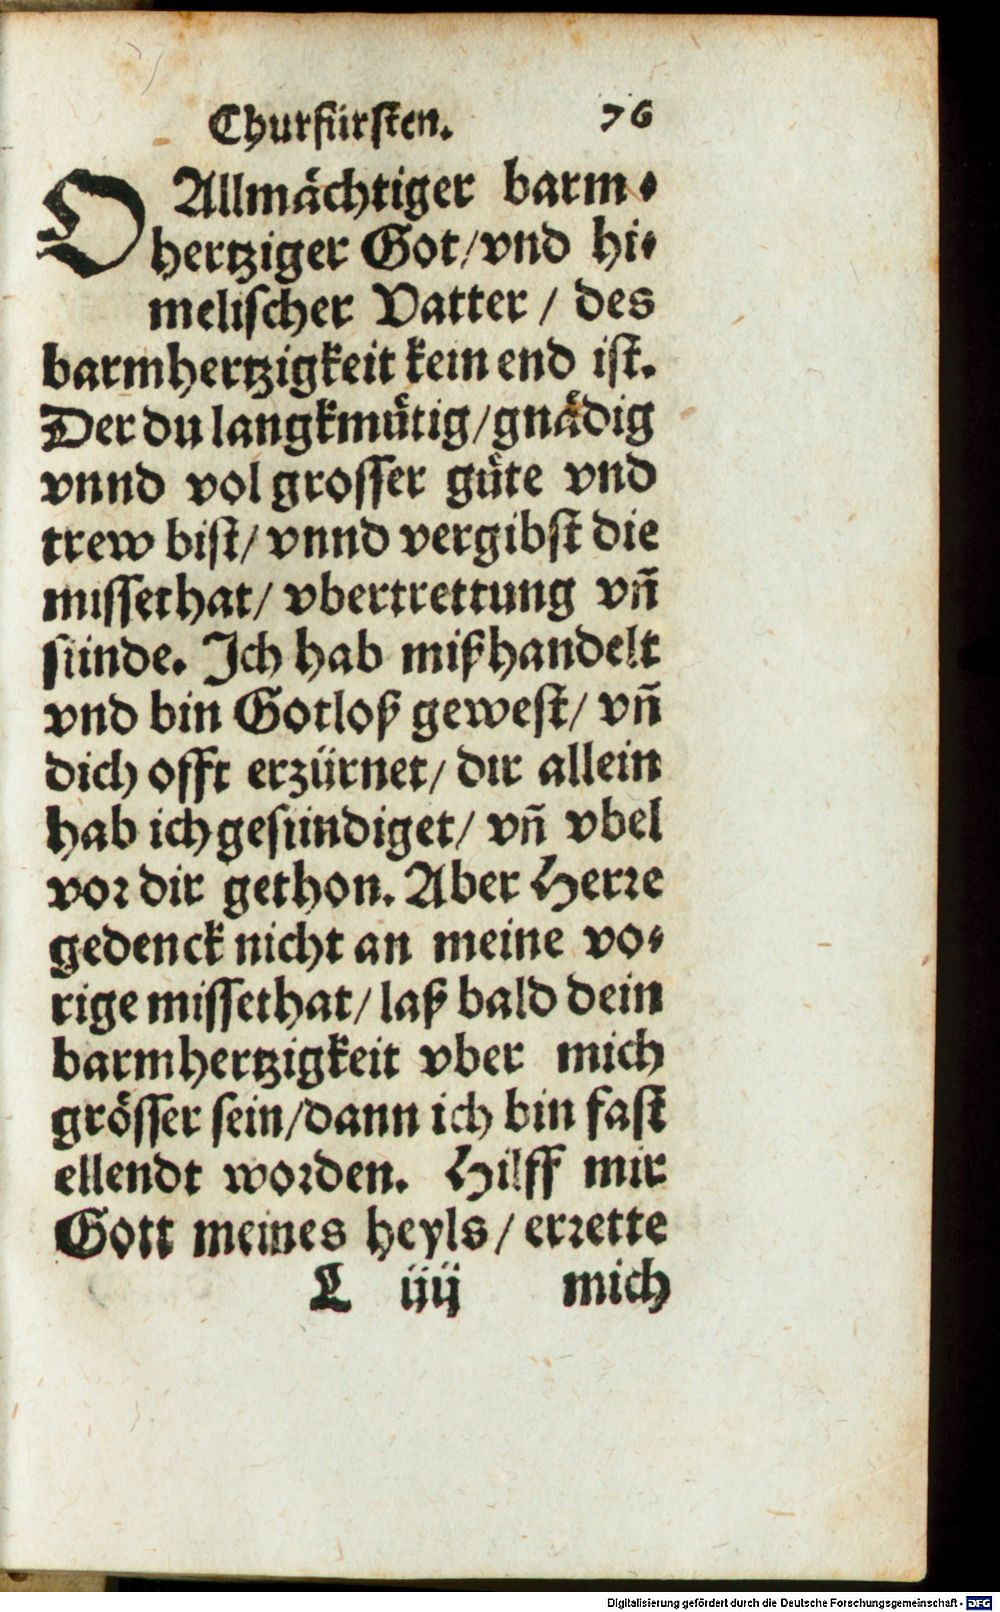 Churfürsten. 76
O Allmächtiger barm-
hertziger Got/vnd hi-
melischer Vatter / des
barmhertzigkeit kein end ist.
Der du langkmütig/gnädig
vnnd vol grosser güte vnd
trew bist/ vnnd vergibst die
missethat/ vbertrettung vñ
sünde. Ich hab mißhandelt
vnd bin Gotloß gewest/ vñ
dich offt erzürnet/ dir allein
hab ich gesündiget/ vñ vbel
vor dir gethon. Aber Herre
gedenck nicht an meine vo-
rige missethat/ laß bald dein
barmhertzigkeit vber mich
grösser sein/dann ich bin fast
ellendt worden. Hilff mir
Gott meines heyls/ errette
L iiij mich
Digitalisierung gefördert durch die Deutsche Forschungsgemeinschaft - DFG